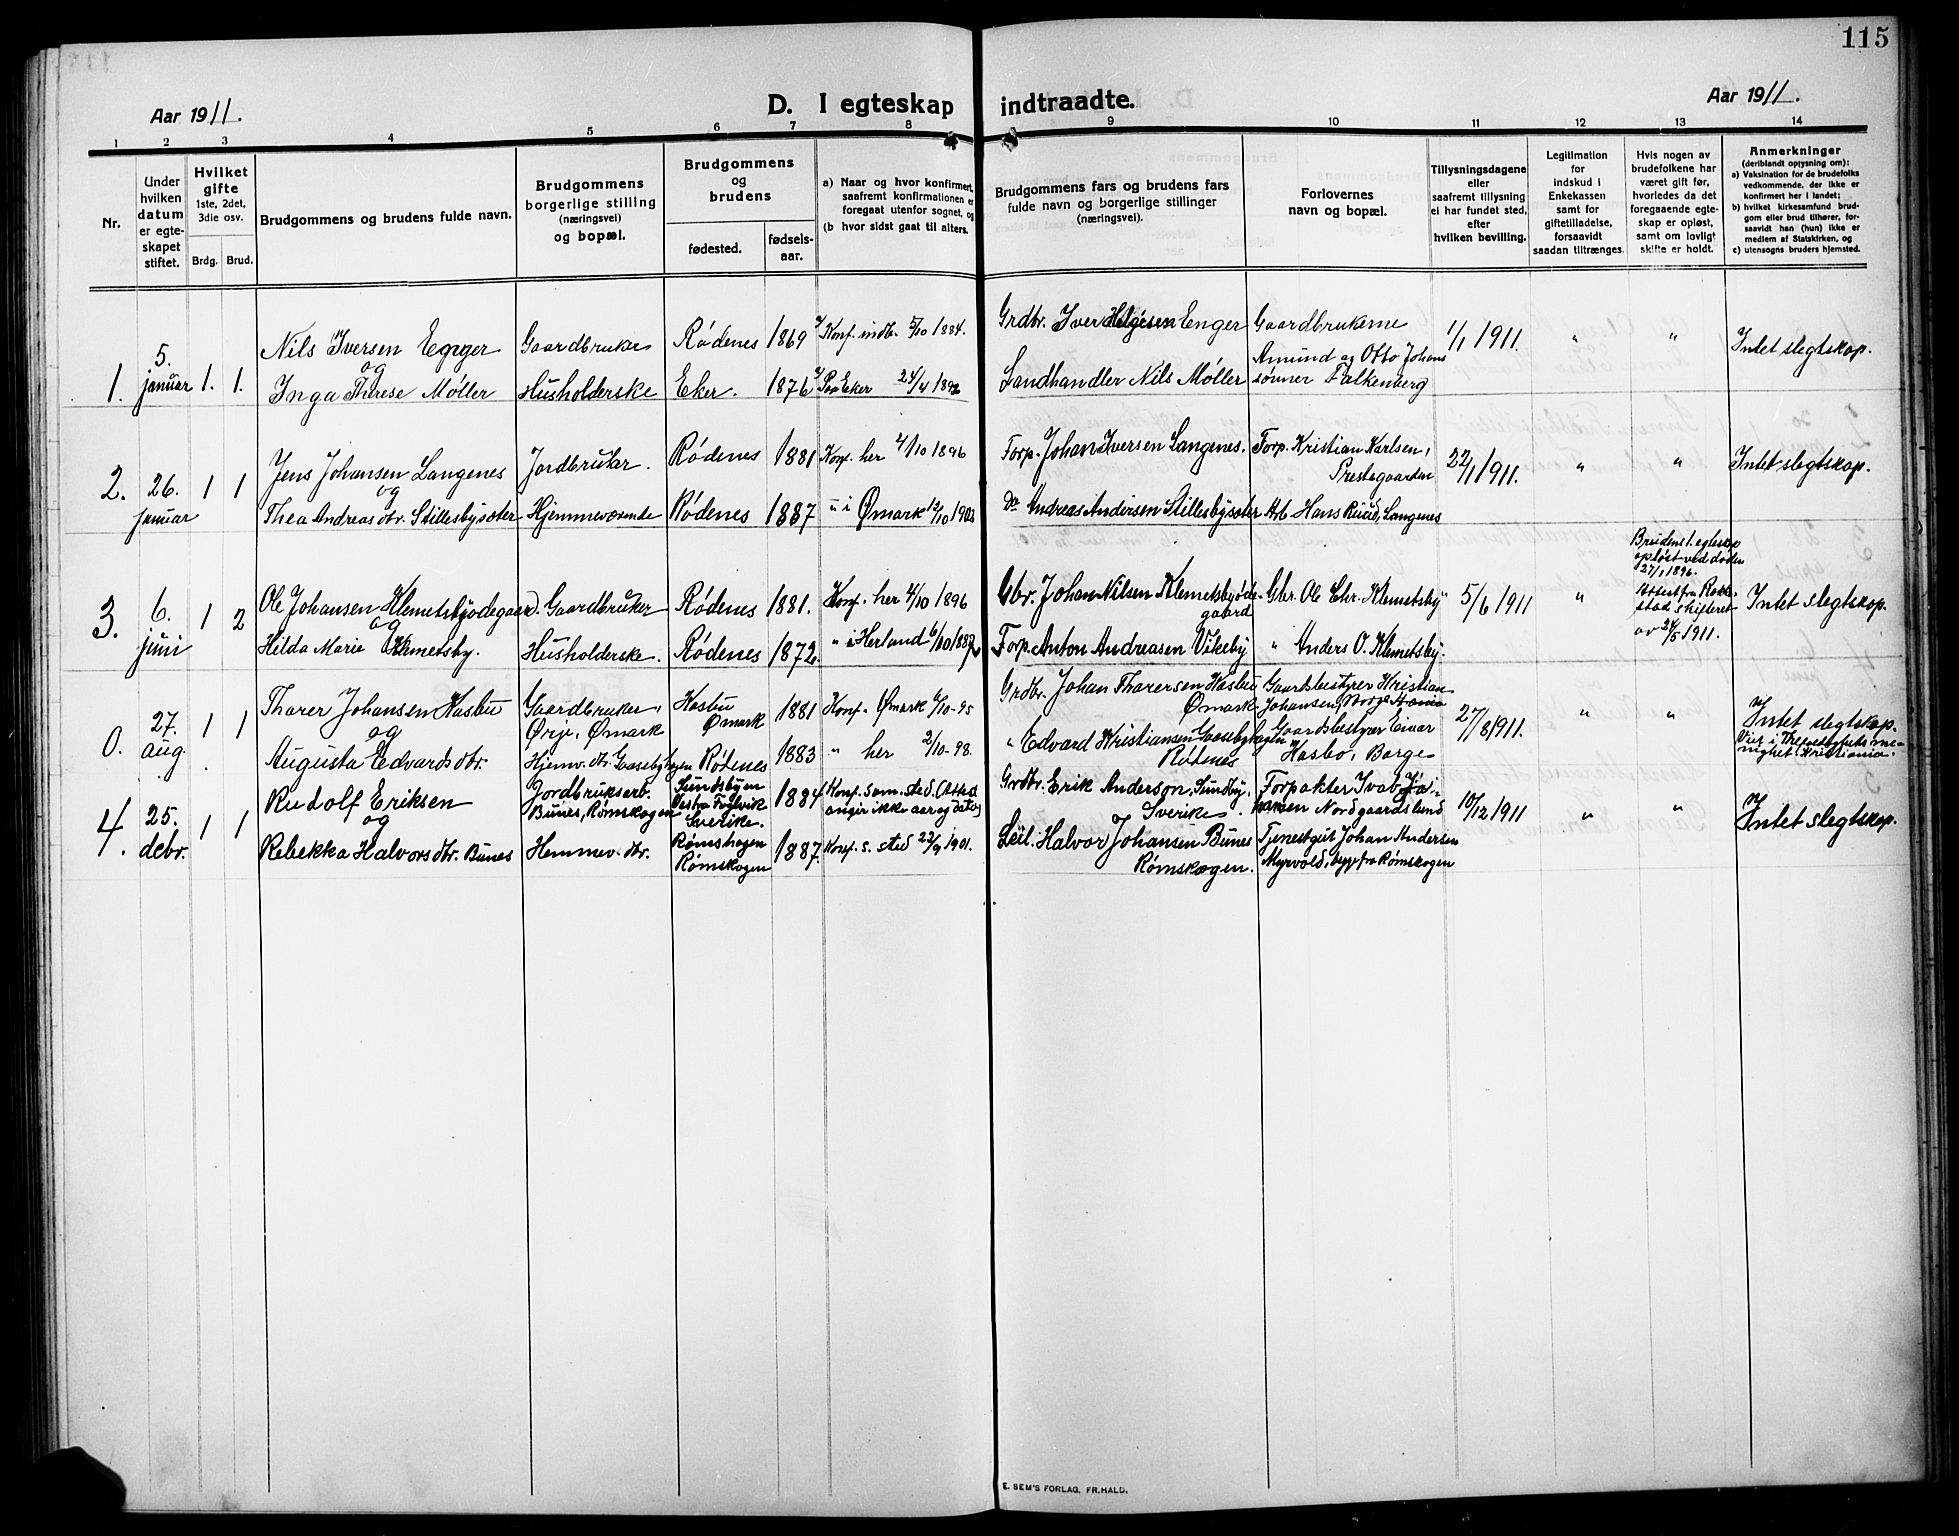 115
Aar 1911.
D. I egteskap indtraadte.
Aar 1911.
1 2 3 4 5 6 7 8 9 10 11 12 13 14
Nr.
Under hvilken datum er egte-skapet stiftet.
Hvilket gifte 1ste, 2det, 3die osv.
Brdg. Brud.
Brudgommens og brudens fulde navn.
Brudgommens borgerlige stilling (næringsvei) og bopæl.
Brudgommens og brudens
fødested.
fødsels-aar.
a) Naar og hvor konfirmert, saafremt konfirmationen er foregaat utenfor sognet, og
(b hvor sidst gaat til alters.
Brudgommens fars og brudens fars fulde navn og borgerlige stillinger (næringsvei).
Forlovernes navn og bopæl.
Tillysningsdagene eller saafremt tillysning ei har fundet sted, efter hvilken bevilling.
Legitimation for indskud i Enkekassen samt for giftetilladelse, forsaavidt saadan tiltrænges.
Hvis nogen av brudefolkene har været gift før, hvorledes da det foregaaende egte-skap er opløst, samt om lovligt skifte er holdt.
Anmerkninger (deriblandt oplysning om):
a) Vaksination for de brudefolks vedkommende, der ikke er konfirmert her i landet;
b) hvilket kirkesamfund brud-gom eller brud tilhører, for-saavidt han (hun) ikke er medlem af Statskirken, og
c) utensogns bruders hjemsted.
1. 5. januar 1. 1.
Nils Iversen Enger
og
Inga Therese Møller
Gaardbruker
Husholderske
Rødenes 1869
Eker. 1876
Konf. indb. 5/10 1884.
Eker 24/4 1892
Grdbr. Iver Helgesen Enger
Landhandler Nils Møller
Gaardbrukerne
Amund og Otto Johans
sønner Falkenberg
1/1 1911. " "
Intet slegtskap.
2. 26. januar 1 1
Jens Johansen Langenes
og
Thea Andreasdtr. Stillesbysæter
Jordbruker.
Hjemmeværende
Rødenes 1881
Rødenes 1887
Konf. her 4/10 1896
" i Ømark 12/10 1902
Forp. Johan Iversen Langenes.
Do Andreas Andersen Stillesbysæter
Forp. Kristian Karlsen,
Prestegaarden
Arb Hans Ruud, Langenes
22/1 1911. " "
Intet slegtskap.
3. 6. juni 1 2
Ole Johansen Klemetsbyødegaard.
og
Hilda Marie Klemetsby.
Gaardbruker
Husholderske.
Rødenes 1881.
Rødenes 1872.
Konf. her 4/10 1896
" i Herland 6/10 1887
Gbr. Johan Nilsen Klemetsbyøde-
gaard
Forp. Anton Andreasen Vikeby
Gbr. Ole Chr. Klemetsby
" Anders O. Klemetsby.
5/6 1911 "
Brudens 1. egteskap
opløst ved døden
27/1 1896.
Attest fra Rakke-
stad skifteret
av 24/5 1911.
Intet slegtskap.
0. 27. aug. 1 1
Tharer Johansen Hasbu
og
Augusta Edvardsdtr.
Gaardbruker,
Ørje, Ømark
Hjemv. dtr. Gaasebyhagen
Hasbu
Ømark 1881
Rødenes 1883
Konf. Ømark 6/10-95
" her 2/10-98.
Grdbr. Johan Tharersen Hasbu
Ømark
" Edvard Kristiansen Gaasebyhagen
Rødenes
Gaardsbestyrer Kristian
Johansen,
Gaardsbestyrer Einar
Hasbo, Borge
27/8 1911. " "
Intet slegtskap.
menighet Kristiania.
4. 25. debr. 1 1
Rudolf Eriksen
og
Rebekka Halvorsdtr. Bunes
Jordbruksarb.
Bunes, Rømskogen
Hemmev. dtr.
Sundsbyen
Vestra Fogelvik
Sverike. 1884
Rømskogen
Rømskogen 1887.
Konf. sam. sted. (Attest
angir ikke aar og dato)
Konf. s. sted 22/9 1901.
Grdbr. Erik Anderson, Sundby,
Sverike.
Leil. Halvor Johansen Bunes
Rømskogen.
Forpakter Ivab Jo-
hansen Nordgaardslund
Tjenestgut Johan Andersen
Myrvold, begge fra Rømskogen
10/12 1911 " "
Intet slegtskap.
E. SEM'S FORLAG, FR.HALD.